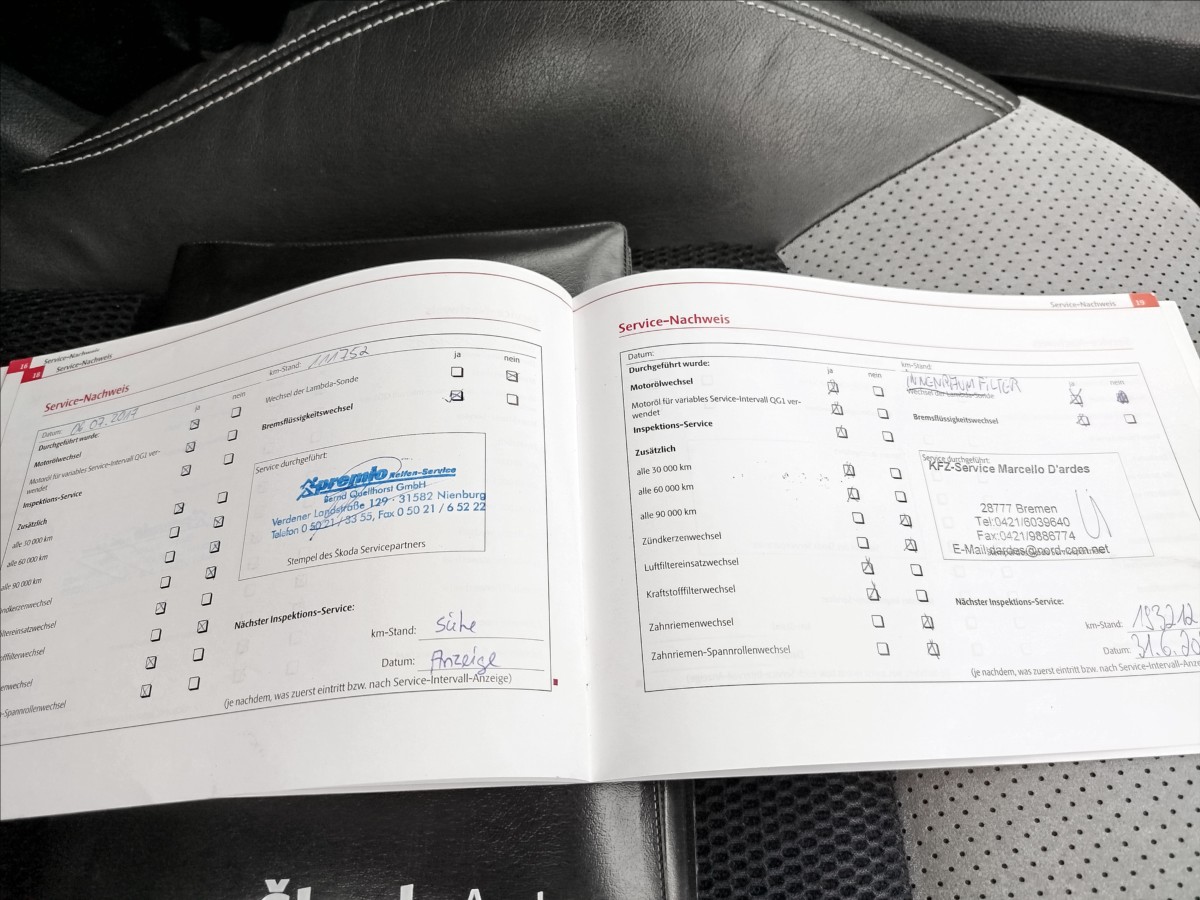 16 Service-Nachweis
18 Service-Nachweis
Service-Nachweis
Datum: 06.07.2017
km-Stand: 111752
ja nein
ja nein
Durchgeführt wurde:
Motorölwechsel
Motoröl für variables Service-Intervall QG1 ver-
wendet
Inspektions-Service
Zusätzlich
alle 30 000 km
alle 60 000 km
alle 90 000 km
ndkerzenwechsel
ltereinsatzwechsel
offfilterwechsel
enwechsel
-Spannrollenwechsel
Wechsel der Lambda-Sonde
Bremsflüssigkeitswechsel
Service durchgeführt:
premio Reifen-Service
Bernd Quellhorst GmbH
Verdener Landstraße 129 · 31582 Nienburg
Telefon 0 50 21 / 33 55, Fax 0 50 21 / 6 52 22
Stempel des Škoda Servicepartners
Nächster Inspektions-Service:
km-Stand: Siehe
Datum: Anzeige
(je nachdem, was zuerst eintritt bzw. nach Service-Intervall-Anzeige)
Service-Nachweis 19
Service-Nachweis
Datum:
km-Stand:
Durchgeführt wurde:
ja nein
ja nein
Motorölwechsel
Motoröl für variables Service-Intervall QG1 ver-
wendet
Inspektions-Service
Zusätzlich
alle 30 000 km
alle 60 000 km
alle 90 000 km
Zündkerzenwechsel
Luftfiltereinsatzwechsel
Kraftstofffilterwechsel
Zahnriemenwechsel
Zahnriemen-Spannrollenwechsel
INNENRAUM FILTER
Wechsel der Lambda-Sonde
Bremsflüssigkeitswechsel
Service durchgeführt:
KFZ-Service Marcello D'ardes
28777 Bremen
Tel:0421/6039640
Fax:0421/9886774
E-Mail:dardes@nord-com.net
Nächster Inspektions-Service:
km-Stand: 193212
Datum: 31.6.20
(je nachdem, was zuerst eintritt bzw. nach Service-Intervall-Anze